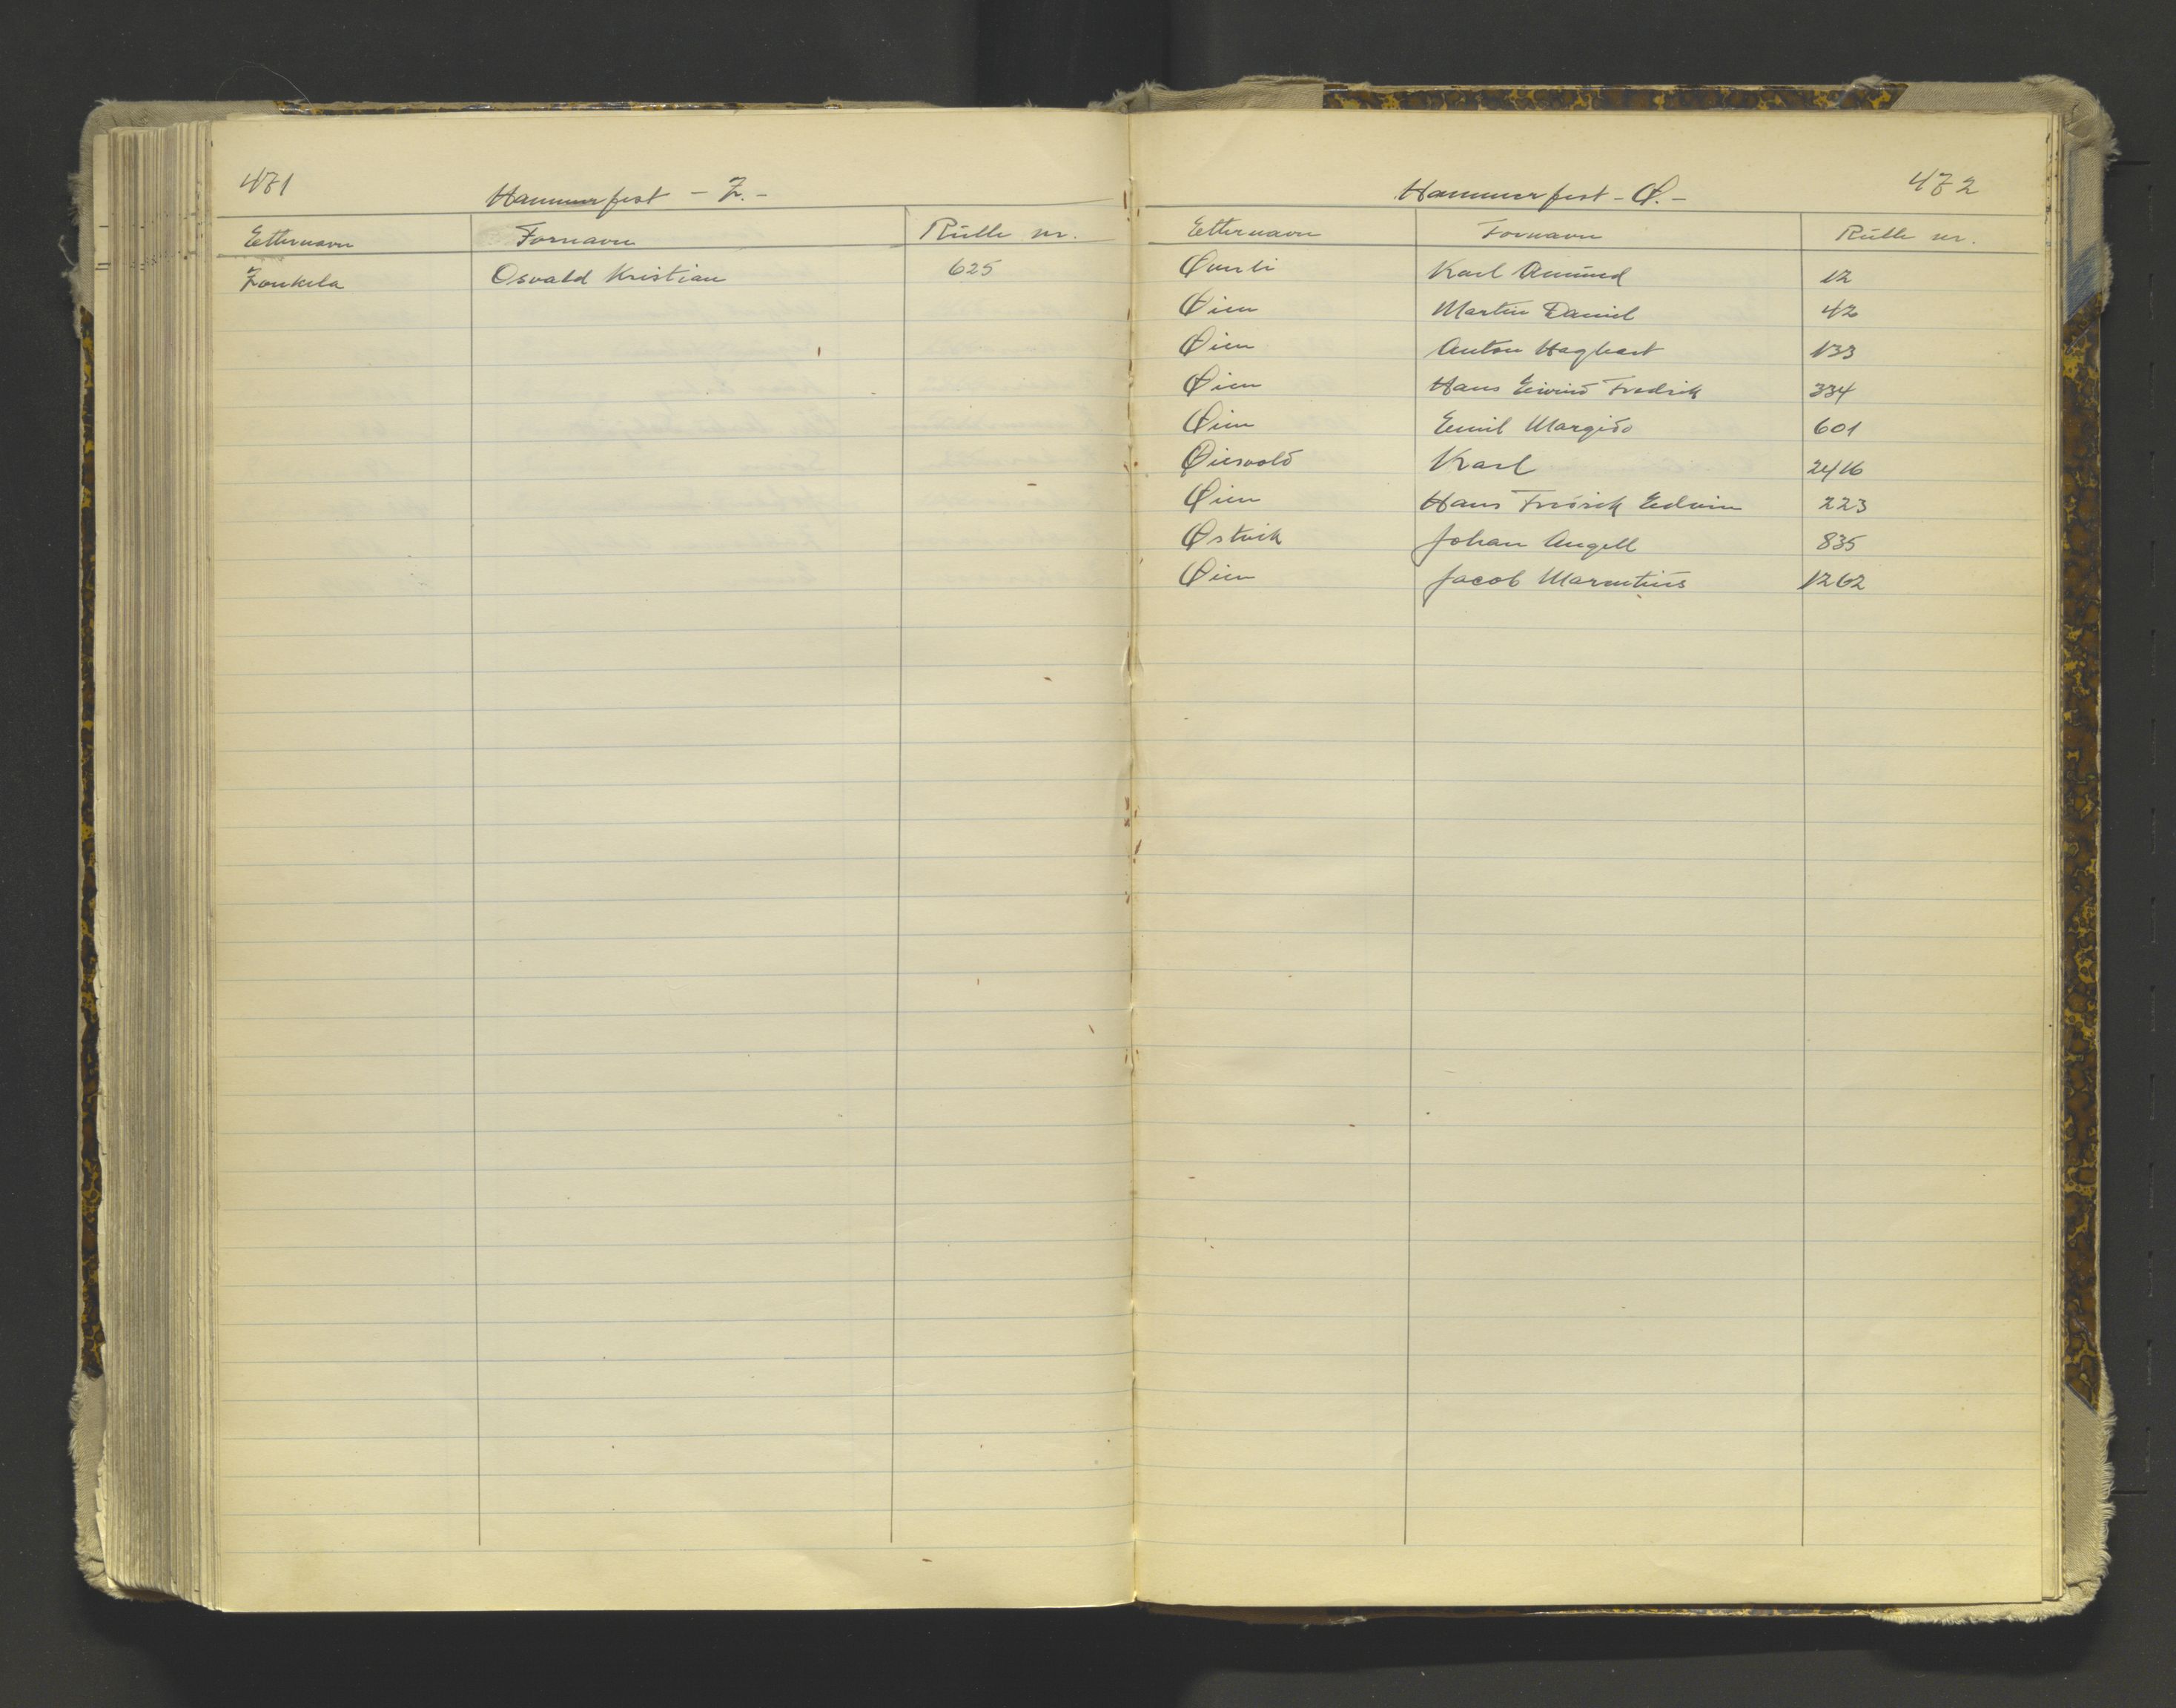 471
Hammerfest - Z. -
Etternavn Fornavn Rulle nr.
Zonkila Osvald Kristian 625
472
Hammerfest - Ø. -
Etternavn Fornavn Rulle nr.
Karl Amund 12
Øien Martin Daniel 42
Øien Anton Hagbart 133
Øien Hans Eivind Fredrik 334
Øien Emil Margido 601
Øiesvold Karl 2416
Øien Hans Fredrik Edvin 223
Østvik Johan Angell 835
Øien Jacob Marentius 1262